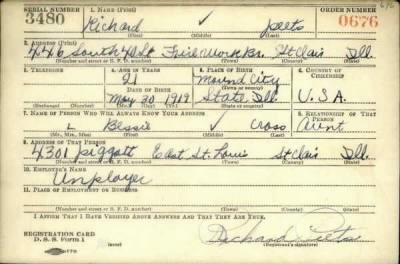 SERIAL NUMBER 1. NAME (Print) ORDER NUMBER
3480 Richard Peets 0676
(First) (Middle) (Last)
2. ADDRESS (Print)
446 South 4 St St Clair Ill.
(Number and street or R. F. D. number) (Town) (County) (State)
3. TELEPHONE 4. AGE IN YEARS 5. PLACE OF BIRTH 6. COUNTRY OF CITIZENSHIP
21 Mound City
DATE OF BIRTH (Town or county)
May 30 1919 State Ill. U.S.A.
(Exchange) (Number) (Mo.) (Day) (Yr.) (State or country)
7. NAME OF PERSON WHO WILL ALWAYS KNOW YOUR ADDRESS 8. RELATIONSHIP OF THAT PERSON
Bessie Cross Aunt
(Mr., Mrs., Miss) (First) (Middle) (Last)
9. ADDRESS OF THAT PERSON
4301 Piggott East St. Louis St Clair Ill.
(Number and street or R. F. D. number) (Town) (County) (State)
10. EMPLOYER'S NAME
Unployer
11. PLACE OF EMPLOYMENT OR BUSINESS
(Number and street or R. F. D. number) (Town) (County) (State)
I AFFIRM THAT I HAVE VERIFIED ABOVE ANSWERS AND THAT THEY ARE TRUE.
REGISTRATION CARD
D. S. S. Form 1 (over) Richard Peets
(Registrant's signature)